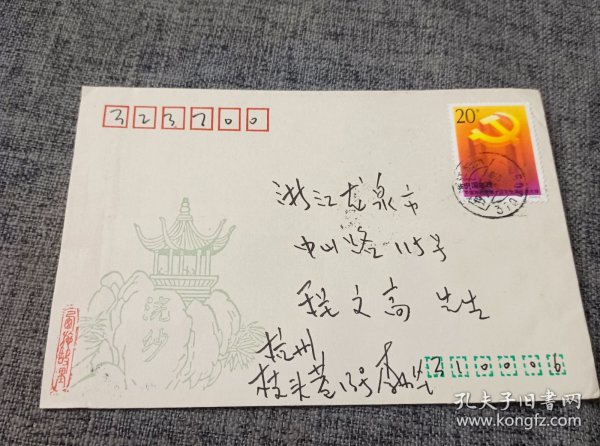 323700
20分
浙江龙泉市
中山路115号
文高 先生
浣纱
杭州
枝头巷13号
310006
孔夫子旧书网
www.kongfz.com